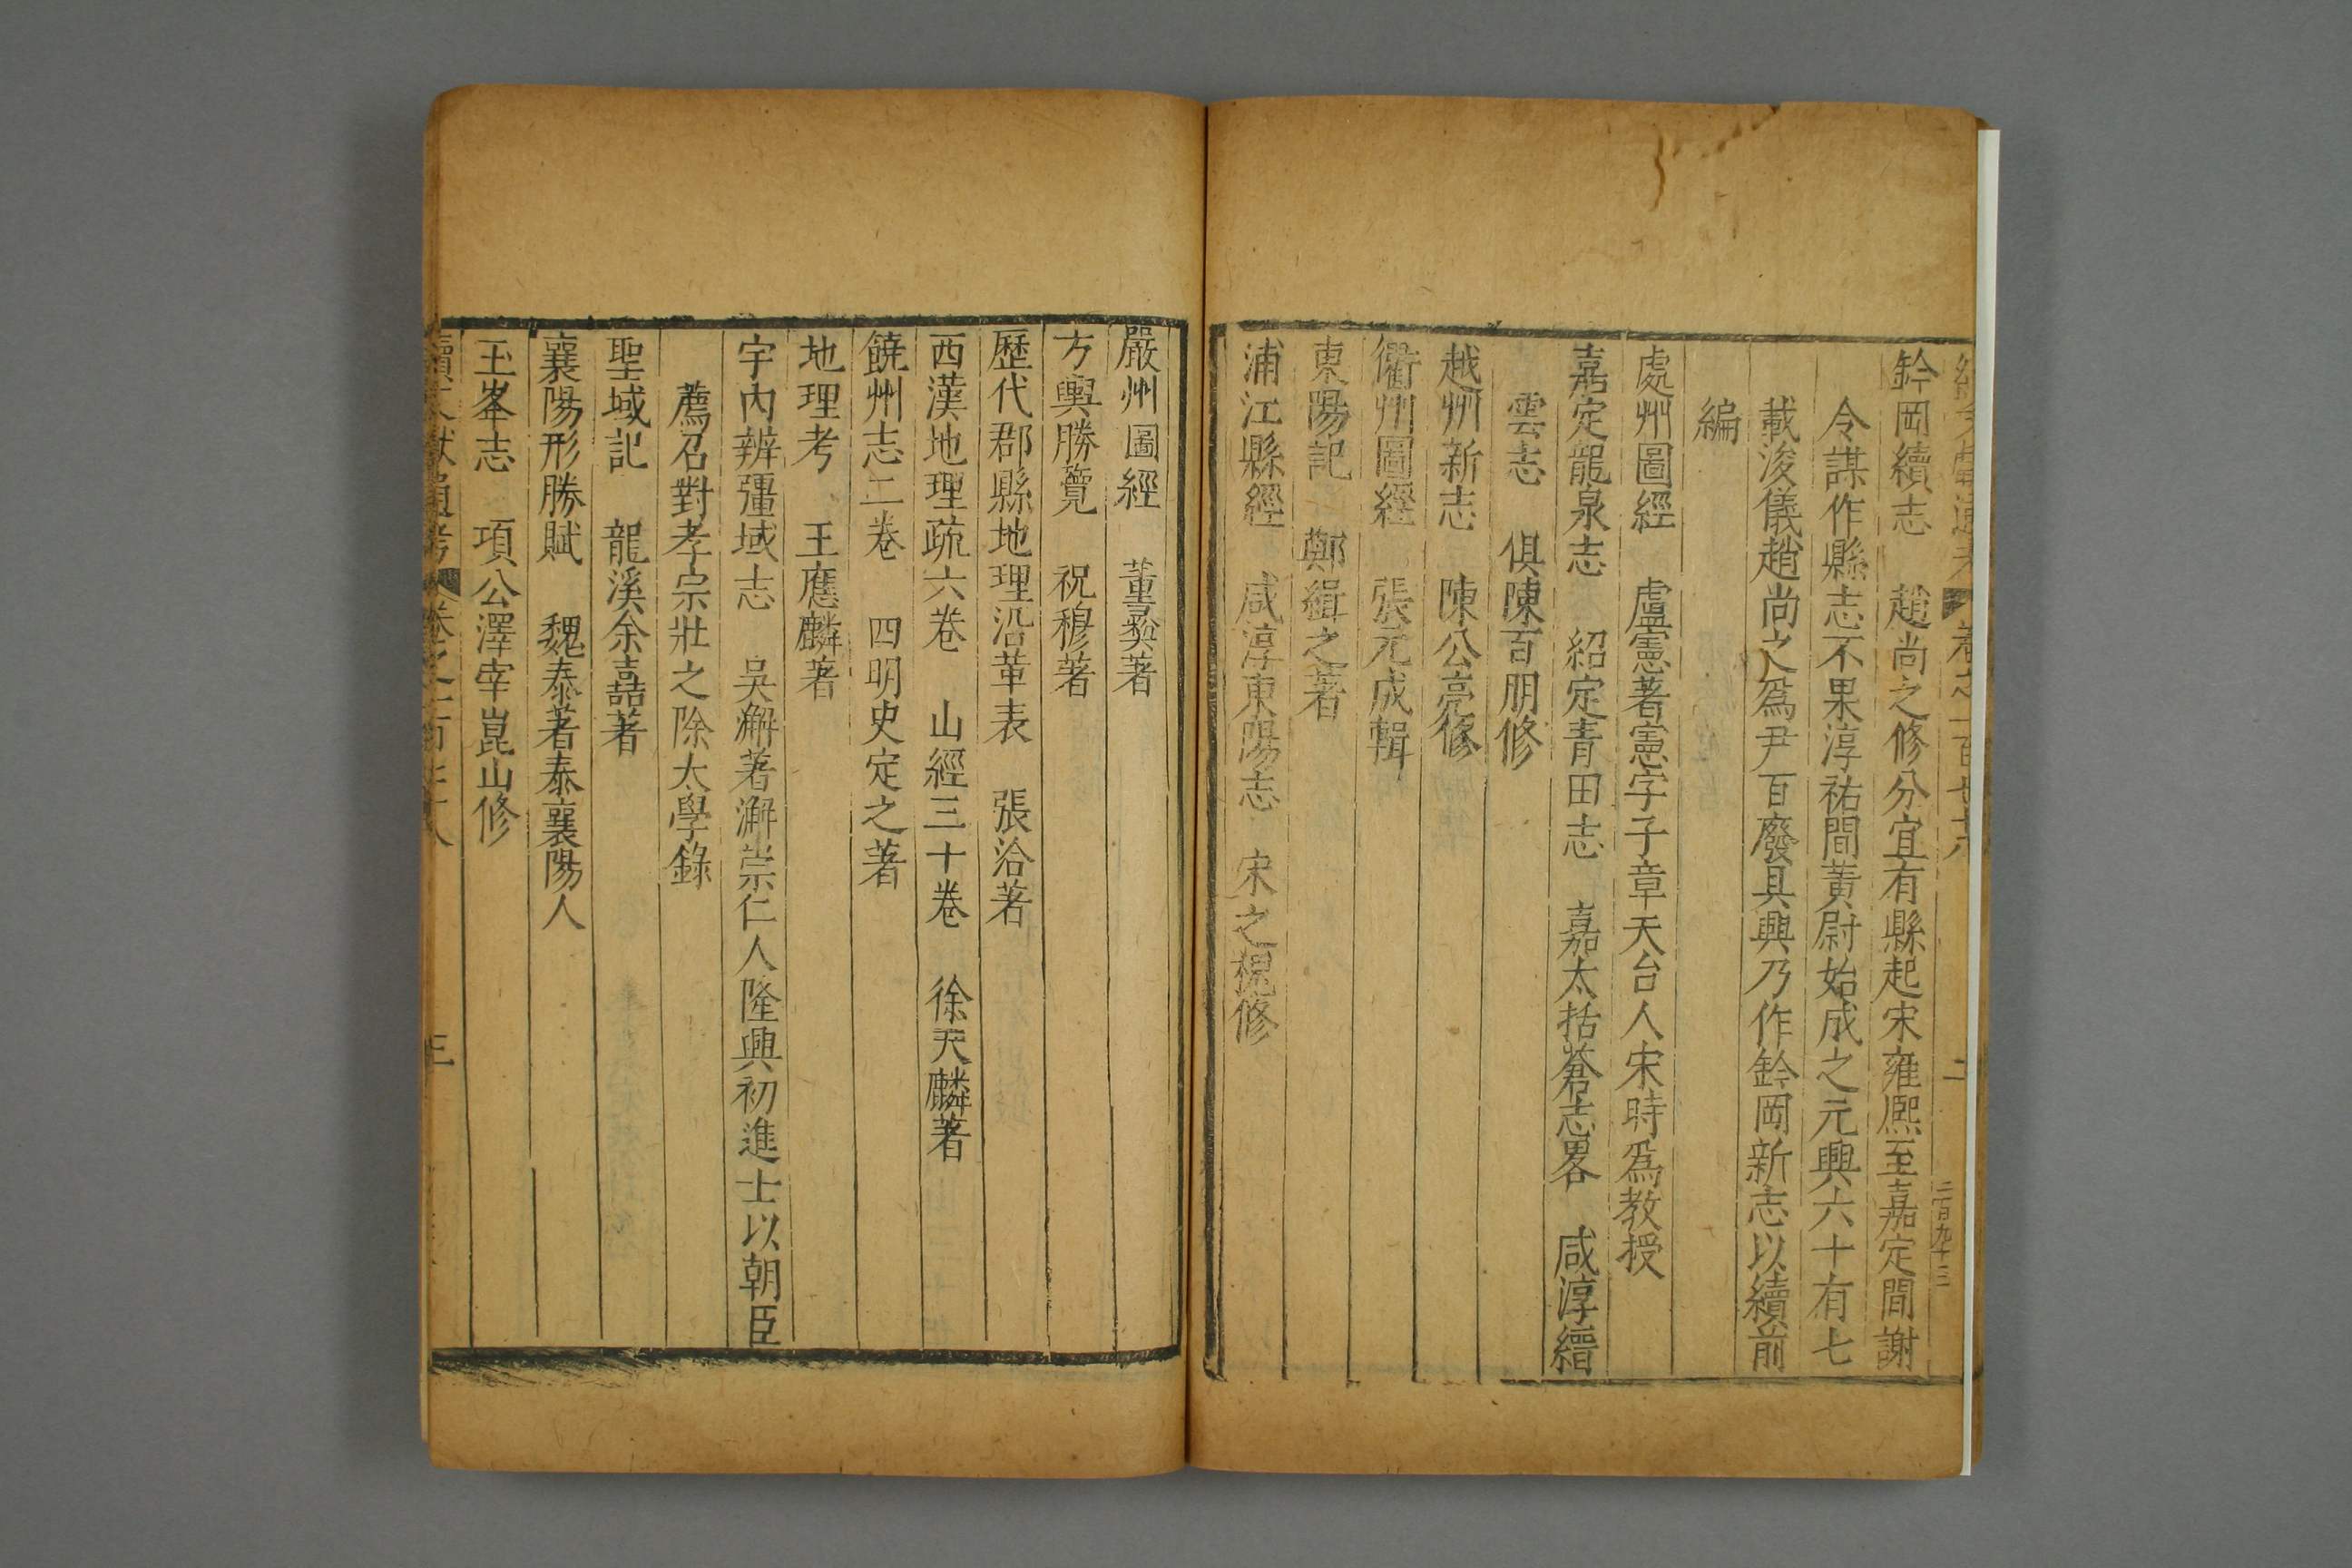 卷之一百七十六
二
二百九十三
鈐岡續志　趙尚之修分宜有縣起宋雍熈至嘉定間謝
令謀作縣志不果淳祐間黃尉始成之元興六十有七
載浚儀趙尚之爲尹百廢具興乃作鈐岡新志以續前
編
處州圖經　盧憲著憲字子章天台人宋時爲教授
嘉定龍泉志　紹定青田志　嘉太括蒼志畧　咸淳縉
雲志　俱陳百朋修
越州新志　陳公亮修
衢州圖經　張元成輯
東陽記　鄭緝之著
浦江縣經　咸淳東陽志　宋之槐修
嚴州圖經　董弅著
方輿勝覽　祝穆著
歷代郡縣地理沿革表　張洽著
西漢地理疏六卷　山經三十卷　徐天麟著
饒州志二卷　四明史定之著
地理考　王應麟著
宇內辨彊域志　吳澥著澥崇仁人隆興初進士以朝臣
薦召對孝宗壯之除太學錄
聖域記　龍溪余嚞著
襄陽形勝賦　魏泰著泰襄陽人
玉峯志　項公澤宰崑山修
續文獻通考　卷之一百七十六
三